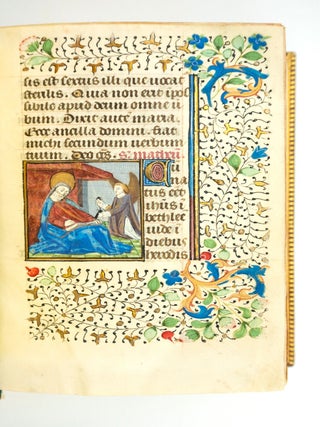 sis est sextus illi que vocat
sterilis. Quia non erit ipos
sibile apud deum omne v
bum. Dixit autē maria.
Ecce ancilla domini. fiat
michi secundum uerbum
tuum. Deo gr̄s. S. matheū.
Cū
natus ēēt
ihūs i
bethlee
iude ī
diebus
herodis